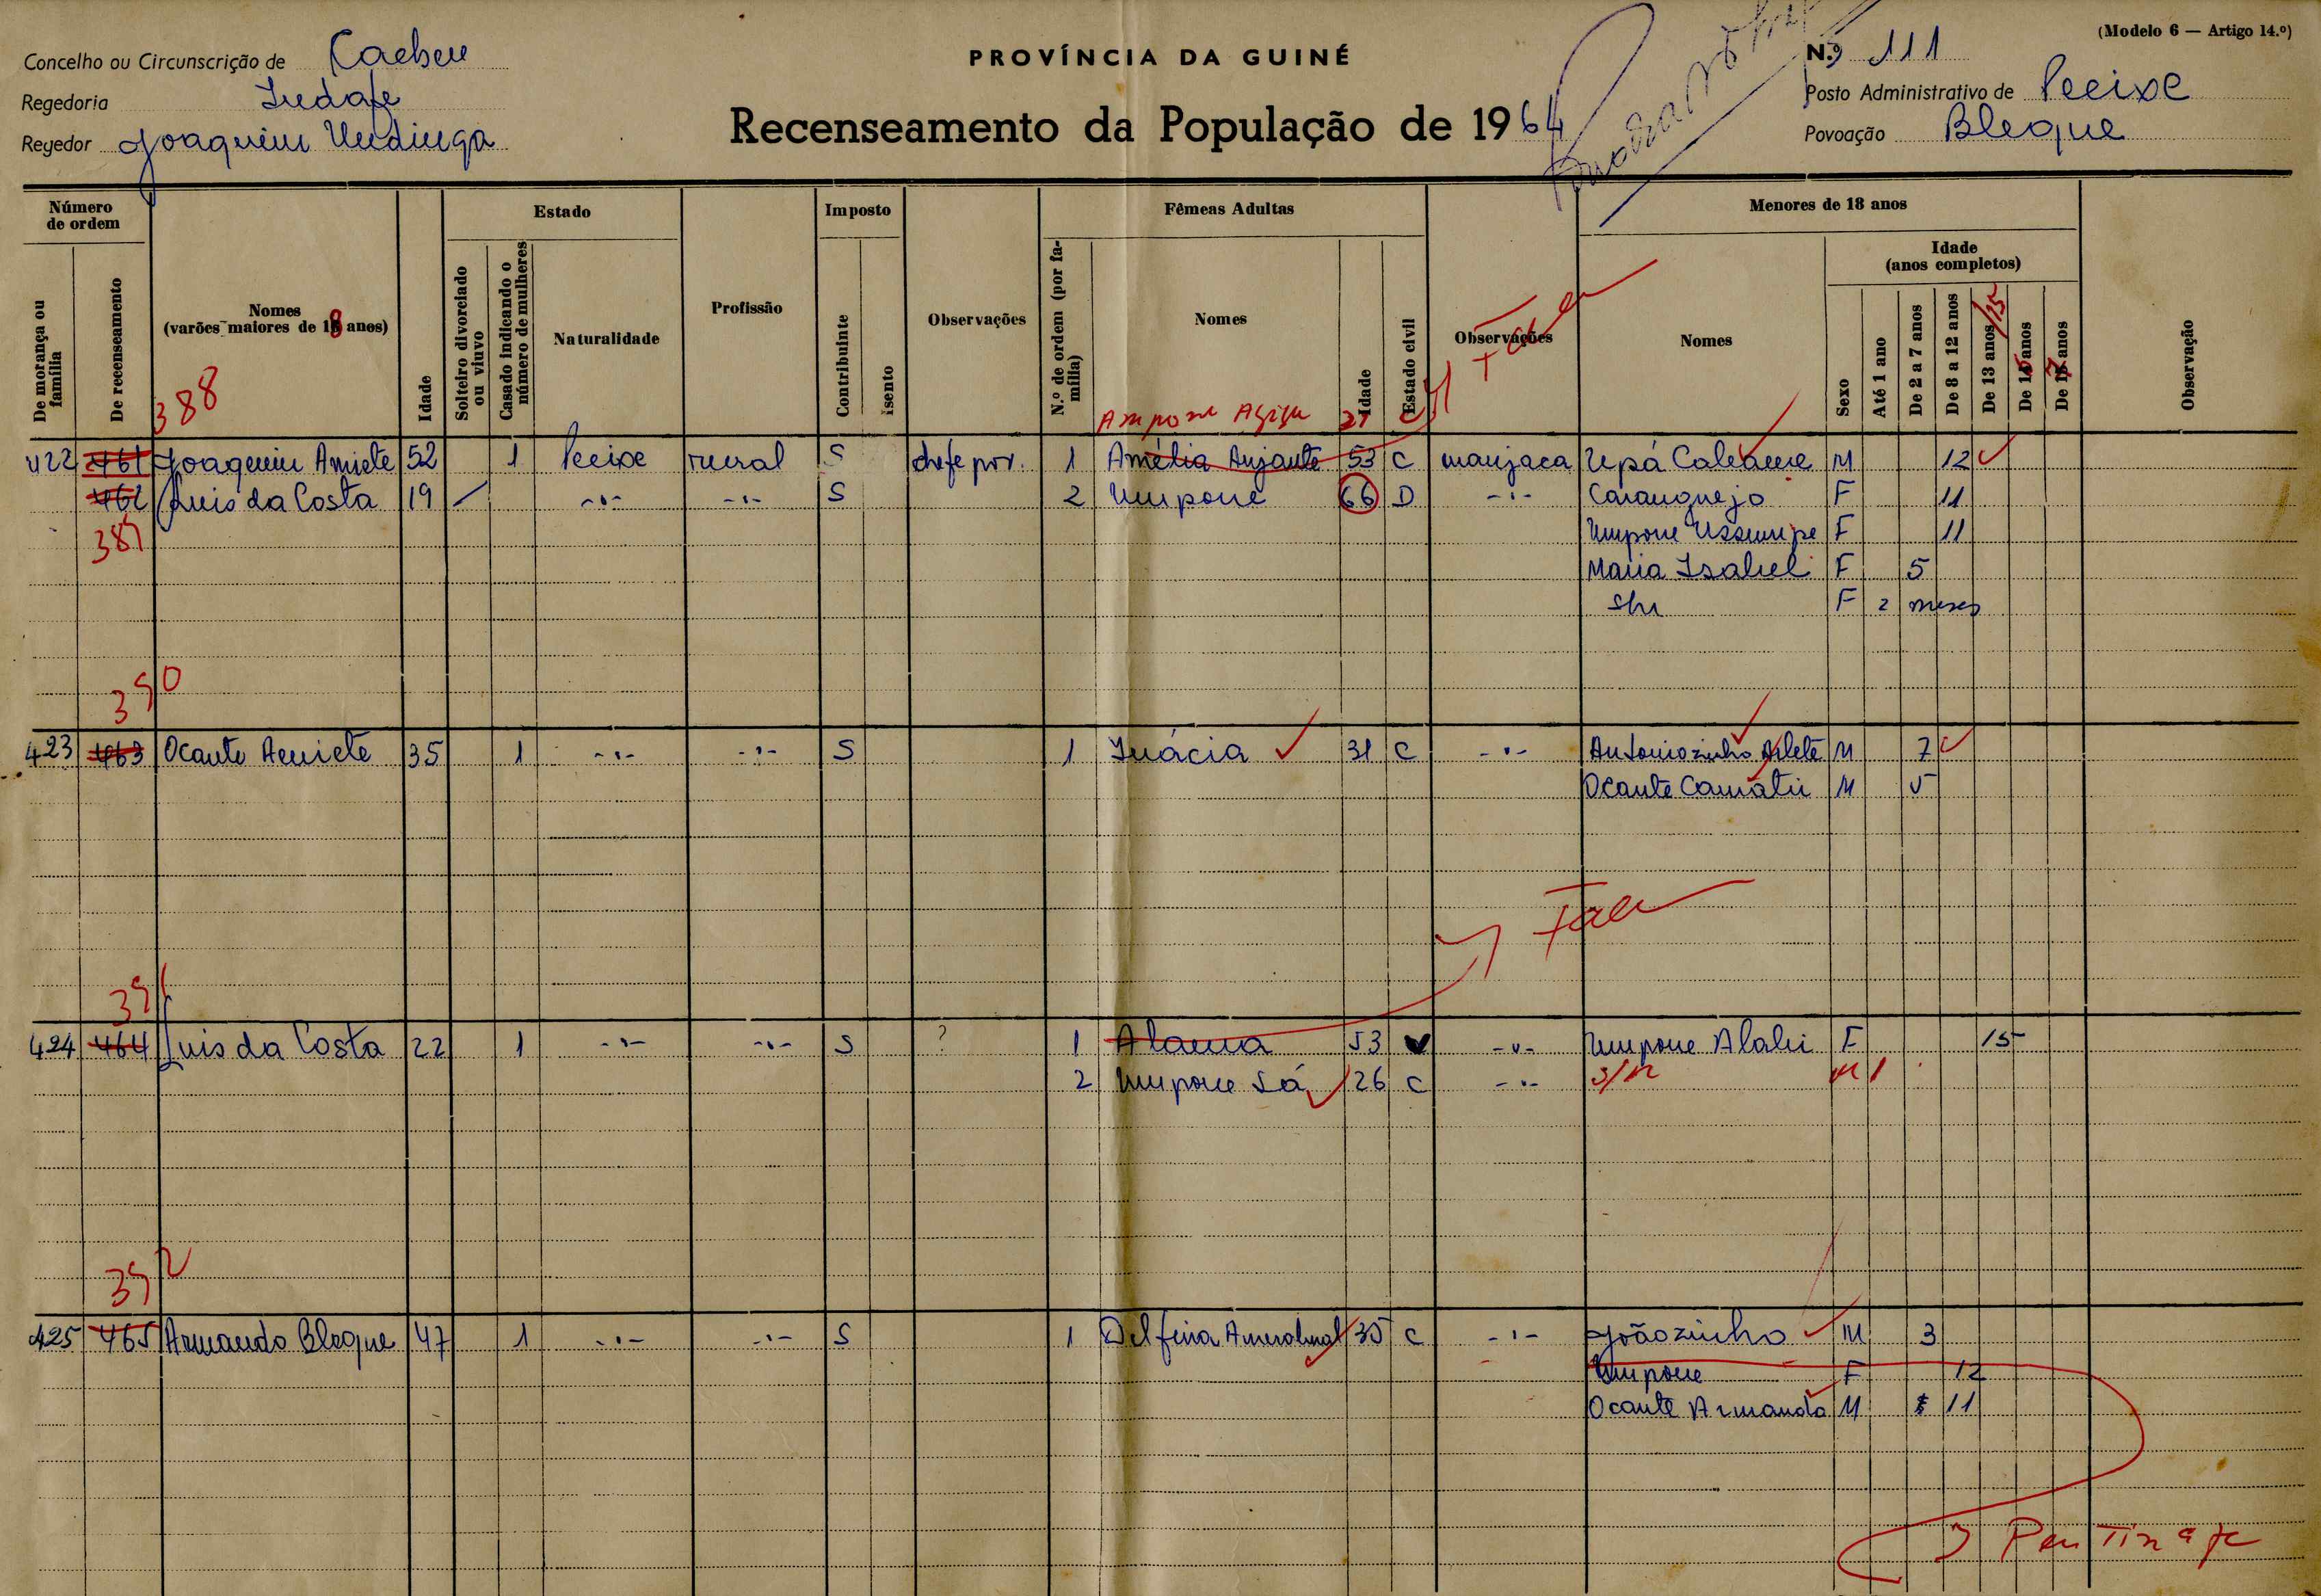 (Modelo 6 — Artigo 14.º)
Concelho ou Circunscrição de Caeheu
PROVÍNCIA DA GUINÉ
N.º 111
Regedoria Indafe
Posto Administrativo de Pecixe
Recenseamento da População de 1964
Regedor Joaquim
Povoação Bleque
Número de ordem
Estado
Imposto
Fêmeas Adultas
Menores de 18 anos
Idade (anos completos)
De morança ou família
De recenseamento
Nomes (varões maiores de 18 anos)
Idade
Solteiro divorciado ou viuvo
Casado indicando o número de mulheres
Naturalidade
Profissão
Contribuinte
Isento
Observações
N.º de ordem (por família)
Nomes
Idade
Estado civil
Observações
Nomes
Sexo
Até 1 ano
De 2 a 7 anos
De 8 a 12 anos
De 13 anos/15
De 15 anos
De 17 anos
Observação
388
Ampone 27 C
422 461 Joaquim Amiete 52 1 Pecixe rural S chefe pov. 1 Amélia Anjante 53 C manjaca Upá Caleame M 12
462 Luis da Costa 19 / -"- -"- S 2 Umpone 66 D -"- Caranguejo F 11
389 Umpone F 11
Maria Isabel F 5
S/n F 2 meses
390
423 463 Ocante Amiete 35 1 -"- -"- S 1 Inácia 31 C -"- Antoniozinho Arlete M 7
Ocante Camatu M 5
Fale
391
424 464 Luis da Costa 22 1 -"- -"- S ? 1 Alama 53 -"- Umpone Alabi F 15
2 Umpone Sá 26 C -"- S/n M 1
392
425 465 Armando Bleque 47 1 -"- -"- S 1 Delfina 35 C -"- Joãozinho M 3
Umpone F 12
Ocante Armando M 11